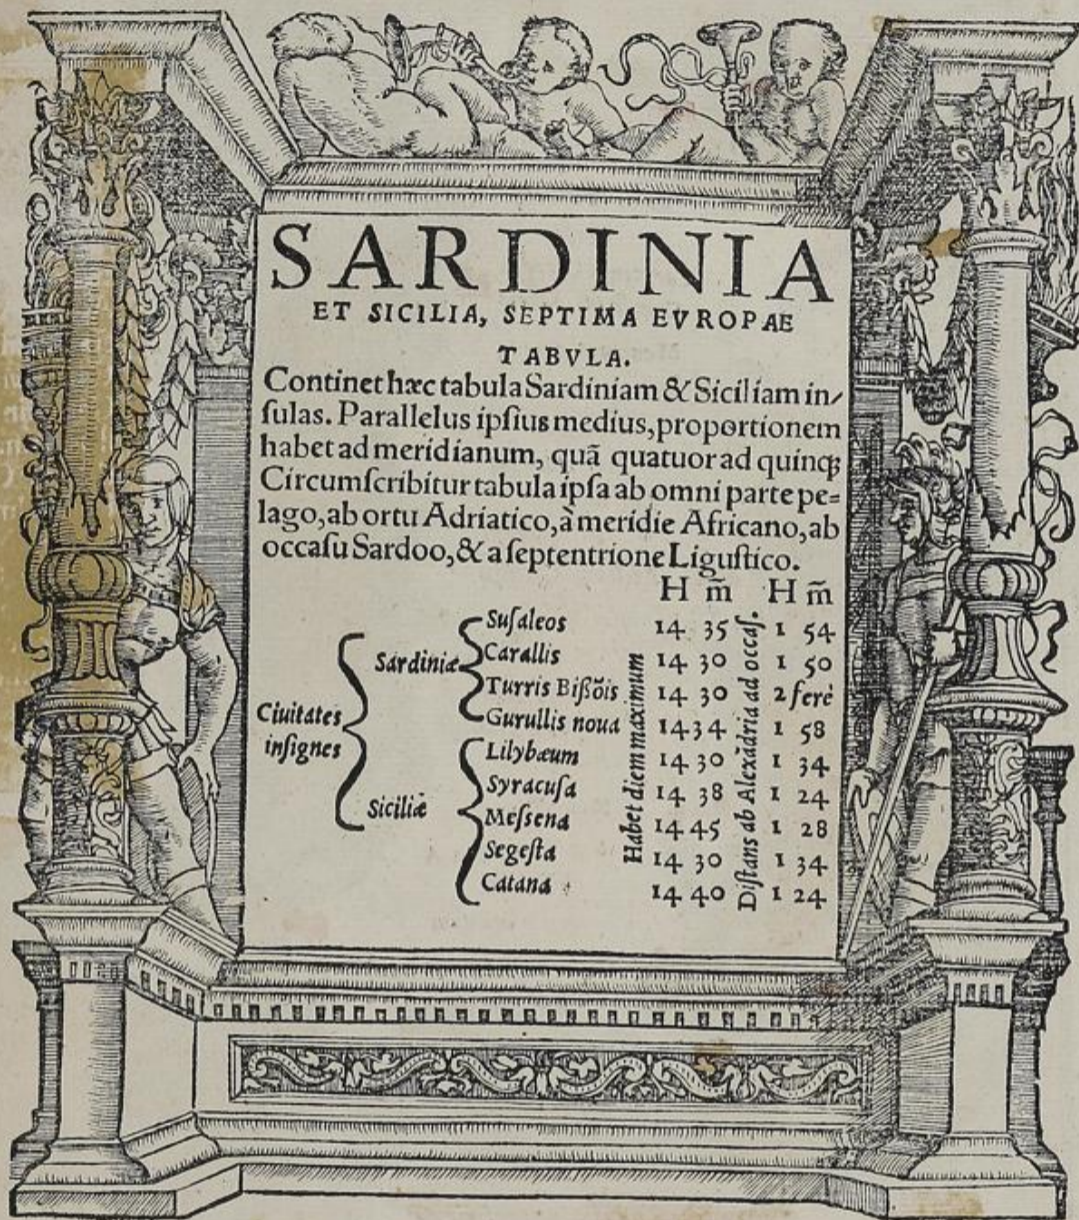 SARDINIA
ET SICILIA, SEPTIMA EVROPAE
TABVLA.
Continet hæc tabula Sardiniam & Siciliam in/
ſulas. Parallelus ipſius medius, proportionem
habet ad meridianum, quã quatuor ad quinq;
Circumſcribitur tabula ipſa ab omni parte pe=
lago, ab ortu Adriatico, à meridie Africano, ab
occaſu Sardoo, & a ſeptentrione Liguſtico.
H m̃ H m̃
Ciuitates inſignes
Sardiniæ
Habet diem maximum
Diſtans ab Alexãdria ad occaſ.
Suſaleos 14 35 1 54
Carallis 14 30 1 50
Turris Bißõis 14 30 2 ferè
Gurullis noua 14 34 1 58
Siciliæ
Lilybæum 14 30 1 34
Syracuſa 14 38 1 24
Meſsena 14 45 1 28
Segeſta 14 30 1 34
Catana 14 40 1 24